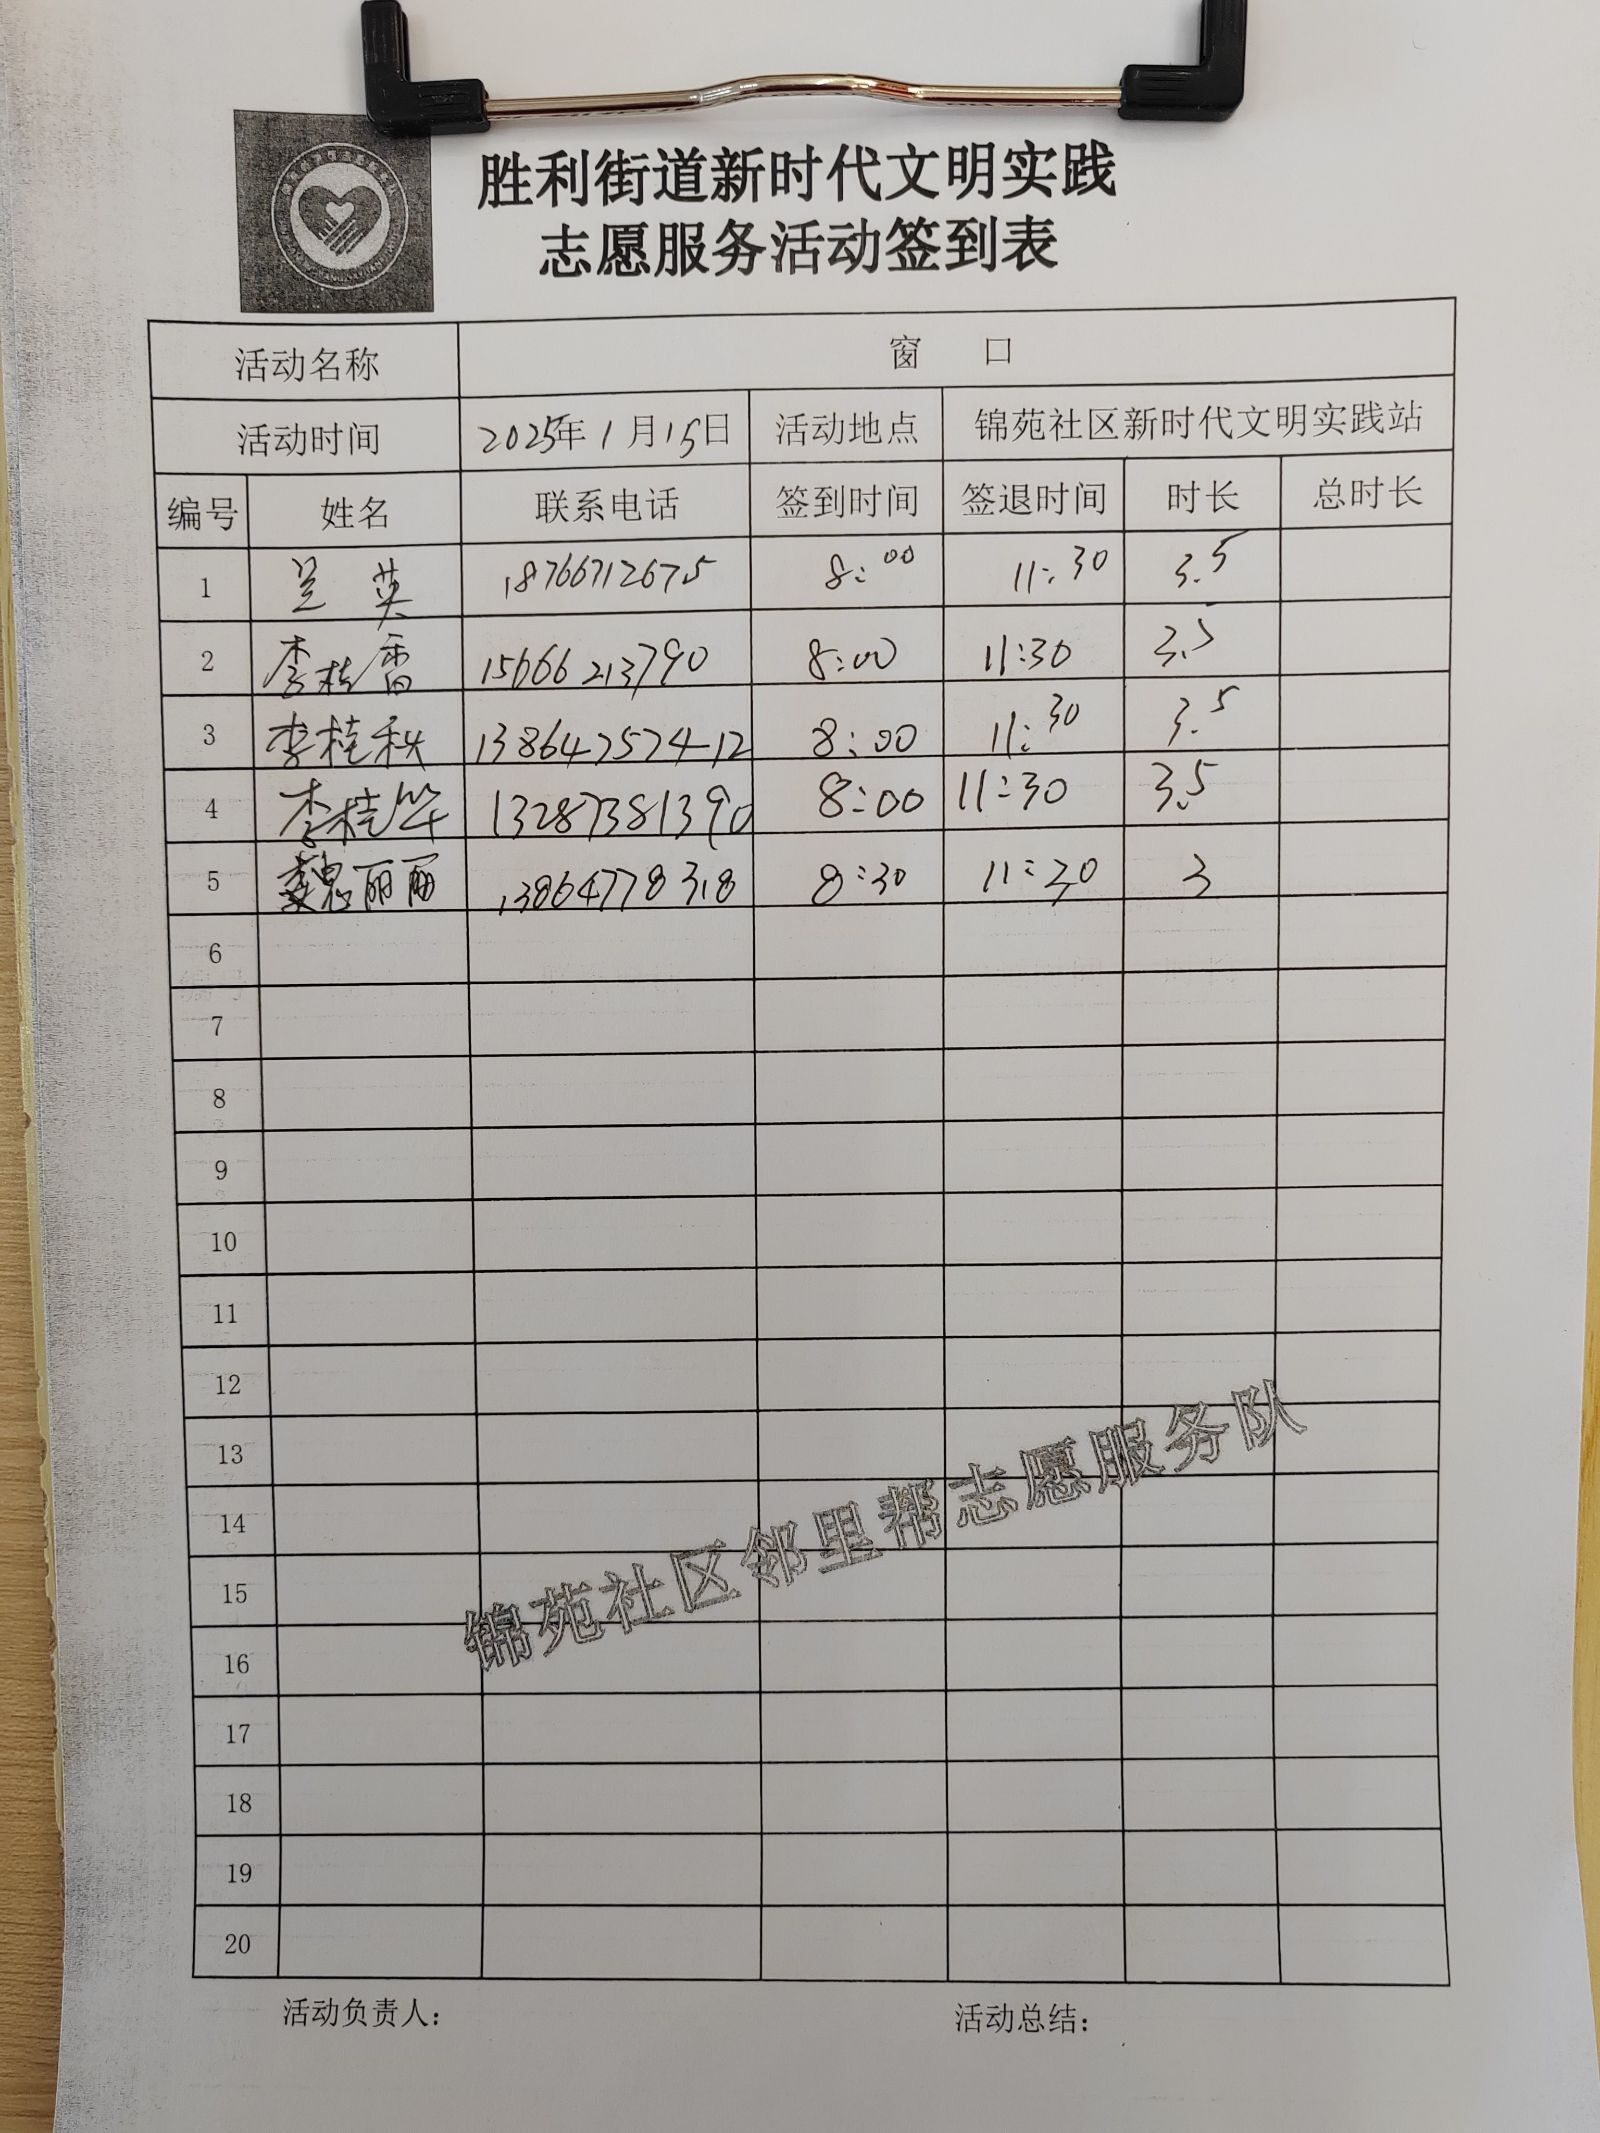 胜利街道新时代文明实践
志愿服务活动签到表
活动名称 窗 口
活动时间 2025年1月15日 活动地点 锦苑社区新时代文明实践站
编号 姓名 联系电话 签到时间 签退时间 时长 总时长
1 吴英 18766712675 8:00 11:30 3.5
2 李桂雷 15666213790 8:00 11:30 3.5
3 李桂秋 13864757412 8:00 11:30 3.5
4 李桂华 13287381390 8:00 11:30 3.5
5 魏丽丽 13864778318 8:30 11:30 3
6
7
8
9
10
11
12
13
14
15
16
17
18
19
20
锦苑社区邻里帮志愿服务队
活动负责人： 活动总结：